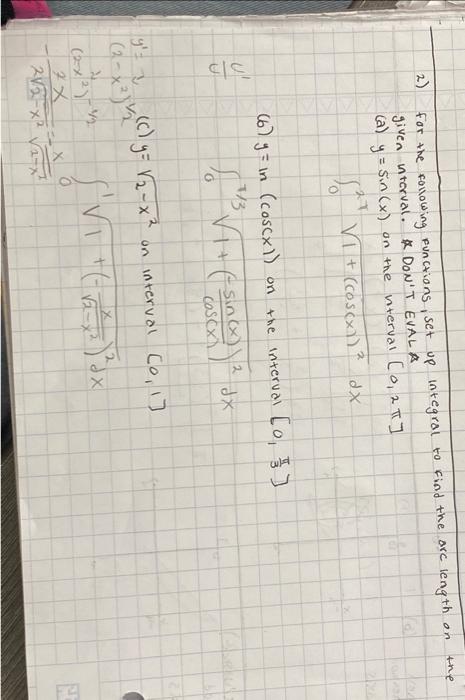 2) For the following functions, set up integral to find the arc length on the
given interval. * DON'T EVAL *
(a) y = sin(x) on the interval [0, 2π]
∫₀^2π √(1 + (cos(x))²) dx
(b) y = ln(cos(x)) on the interval [0, π/3]
u'/u
∫₀^π/3 √(1 + (-sin(x)/cos(x))²) dx
(c) y = √(2-x²) on interval [0, 1]
(2-x²)^1/2
(2-x²)^-1/2
-2x/2√(2-x²) = -x/√(2-x²)
∫₀^1 √(1 + (-x/√(2-x²))²) dx